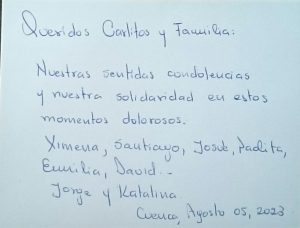 Queridos Carlitos y Familia:
Nuestras sentidas condolencias
y nuestra solidaridad en estos
momentos dolorosos.
Ximena, Santiago, Josué, Paolita,
Emilia, David..
Jorge y Katalina
Cuenca, Agosto 05, 2023